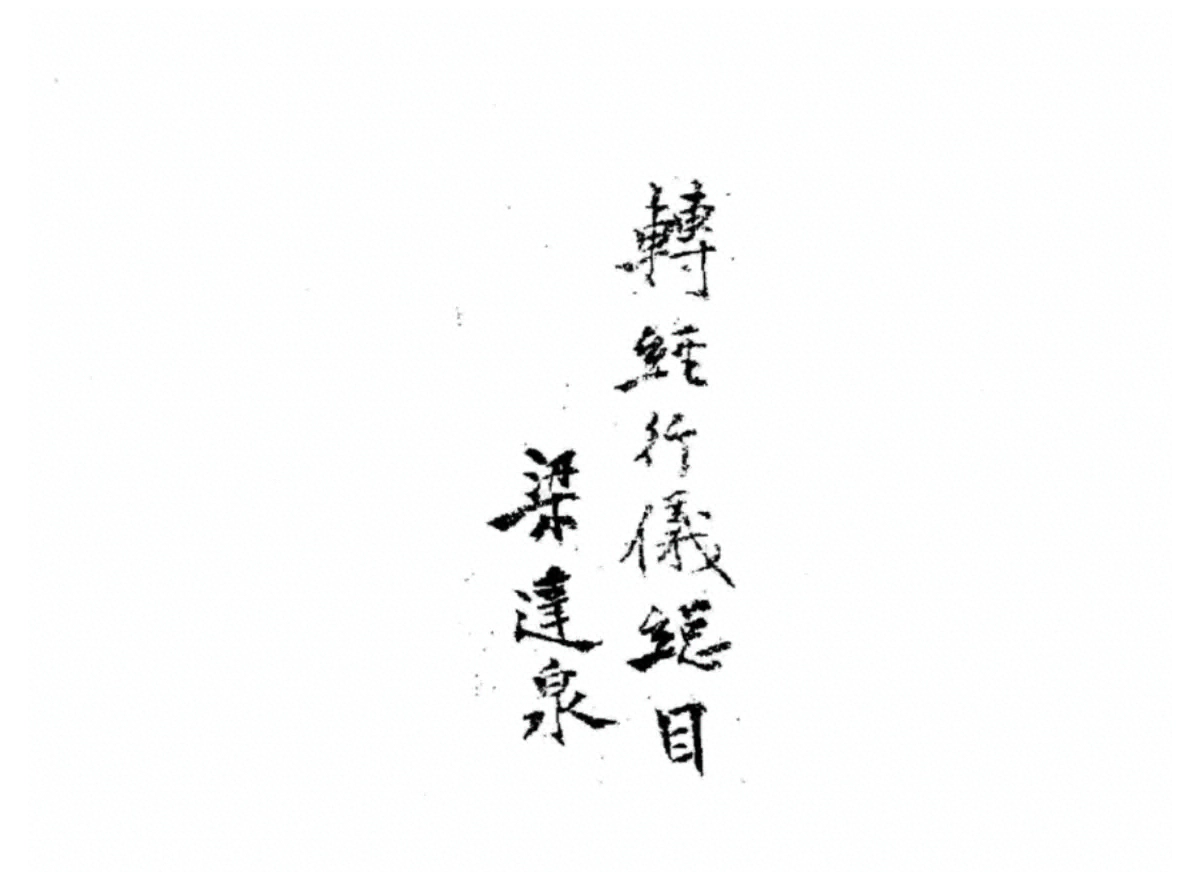 轉經行儀總目
梁達泉